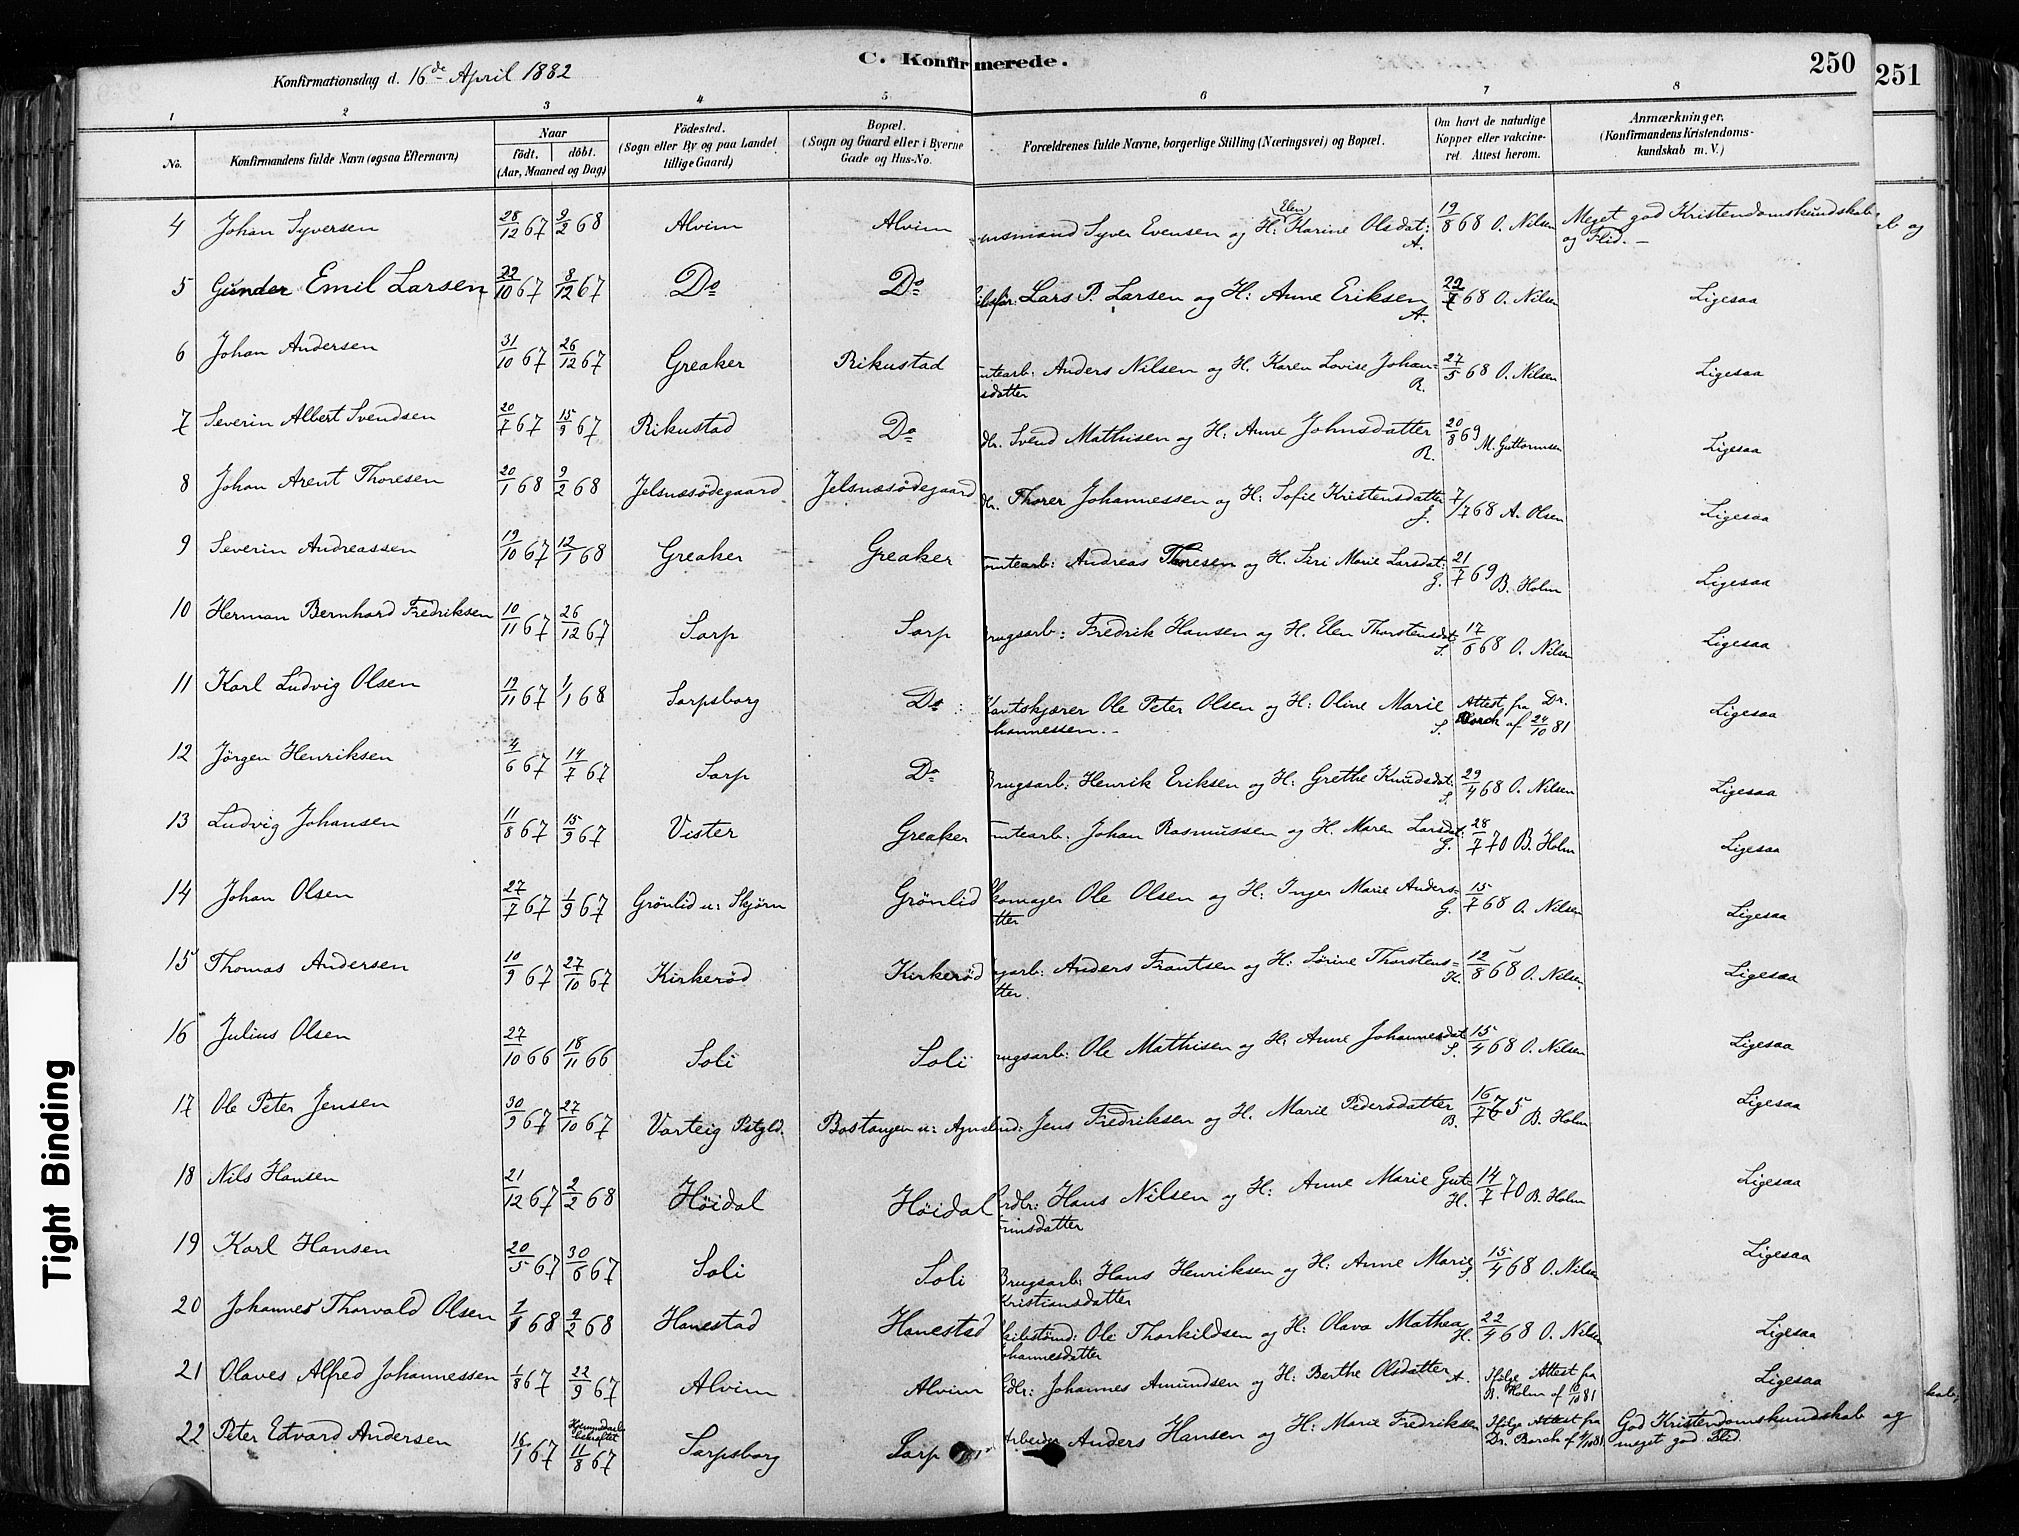 Konfirmationsdag d. 16de April 1882
C. Konfirmerede.
250
251
1 2 3 4 5 6 7 8
No. Konfirmandens fulde Navn (ogsaa Efternavn) Naar födt. döbt. (Aar, Maaned og Dag) Födested. (Sogn eller By og paa Landet tillige Gaard) Bopæl. (Sogn og Gaard eller i Byerne Gade og Hus-No. Forældrenes fulde Navne, borgerlige Stilling (Næringsvei) og Bopæl. Om havt de naturlige Kopper eller vakcineret. Attest herom. Anmærkninger. (Konfirmandens Kristendomskundskab m. V.)
4 Johan Syversen 28/12 67 9/2 68 Alvim Alvim Syver Evensen og H: Elen Karine Olsdat: A. 19/8 68 O. Nilsen Meget god Kristendomskundskab og Flid. —
5 Gunder Emil Larsen 22/10 67 8/12 67 Do Do Lars P. Larsen og H: Anne Eriksen A. 29/7 68 O. Nilsen Ligesaa
6 Johan Andersen 31/10 67 26/12 67 Greaker Rikustad Anders Nilsen og H. Karen Lovise Johansdatter R. 27/5 68 O. Nilsen Ligesaa
7 Severin Albert Svendsen 20/7 67 15/9 67 Rikustad Do Svend Mathisen og H: Anne Johnsdatter R. 20/8 69 M. Guttormsen Ligesaa
8 Johan Arent Thoresen 20/1 68 9/2 68 Jelsnæsödegaard Jelsnæsödegaard Thorer Johannessen og H: Sofie Kristensdatter J. 7/7 68 A. Olsen Ligesaa
9 Severin Andreassen 19/10 67 12/1 68 Greaker Greaker Andreas Thoresen og H. Siri Marie Larsdat: G. 21/7 69 B. Holm Ligesaa
10 Herman Bernhard Fredriksen 10/11 67 26/12 67 Sarp Sarp Brugsarb: Fredrik Hansen og H. Elen Thorstensdat S. 17/6 68 O. Nilsen Ligesaa
11 Karl Ludvig Olsen 19/11 67 1/1 68 Sarpsborg Do Ole Peter Olsen og H: Oline Marie Johannessen. S. Attest fra Dr. Borch af 24/10 81 Ligesaa
12 Jörgen Henriksen 4/6 67 14/7 67 Sarp Do Brugsarb: Henrik Eriksen og H: Grethe Knudsdat: S. 29/4 68 O. Nilsen Ligesaa
13 Ludvig Johansen 11/8 67 15/9 67 Vister Greaker Johan Rasmussen og H. Maren Larsdat: G. 28/7 70 B. Holm Ligesaa
14 Johan Olsen 27/7 67 1/9 67 Grönlid u: Skjörn Grönlid Skomager Ole Olsen og H: Inger Marie Andersdatter G. 15/7 68 O. Nilsen Ligesaa
15 Thomas Andersen 10/9 67 27/10 67 Kirkeröd Kirkeröd Anders Frantsen og H: Sörine Thorstensdatter. K. 12/8 68 O. Nilsen. Ligesaa
16 Julius Olsen 27/10 66 18/11 66 Soli Soli Brugsarb: Ole Mathisen og H: Anne Johannesdat S. 15/4 68 O. Nilsen Ligesaa
17 Ole Peter Jensen 30/9 67 27/10 67 Varteig Pstgld. Bostangen u: Jens Fredriksen og H. Marie Pedersdatter B. 16/7 75 B. Holm Ligesaa
18 Nils Hansen 21/12 67 2/2 68 Höidal Höidal Hans Nilsen og H: Anne Marie Guttormsdatter H. 14/7 70 B. Holm Ligesaa
19 Karl Hansen 20/5 67 30/6 67 Soli Soli Brugsarb: Hans Henriksen og H: Anne Marie Kristiansdatter S. 15/4 68 O. Nilsen Ligesaa
20 Johannes Thorvald Olsen 68 9/2 68 Hanestad Hanestad Ole Thorkildsen og H: Olava Mathea Johannesdatter H. 22/4 68 O. Nilsen Ligesaa
21 Olaves Alfred Johannessen 1/8 67 22/9 67 Alvim Alvim Johannes Amundsen og H: Berthe Olsdatter A. Ifölge Attest fra B. Holm af 81 Ligesaa
22 Peter Edvard Andersen 16/1 67 11/8 67 Sarpsborg Sarp Arbeider Anders Hansen og H: Marie Fredriksen Ifölge Attest fra Dr. Borch God Kristendomskundskab og meget god Flid.
Tight Binding